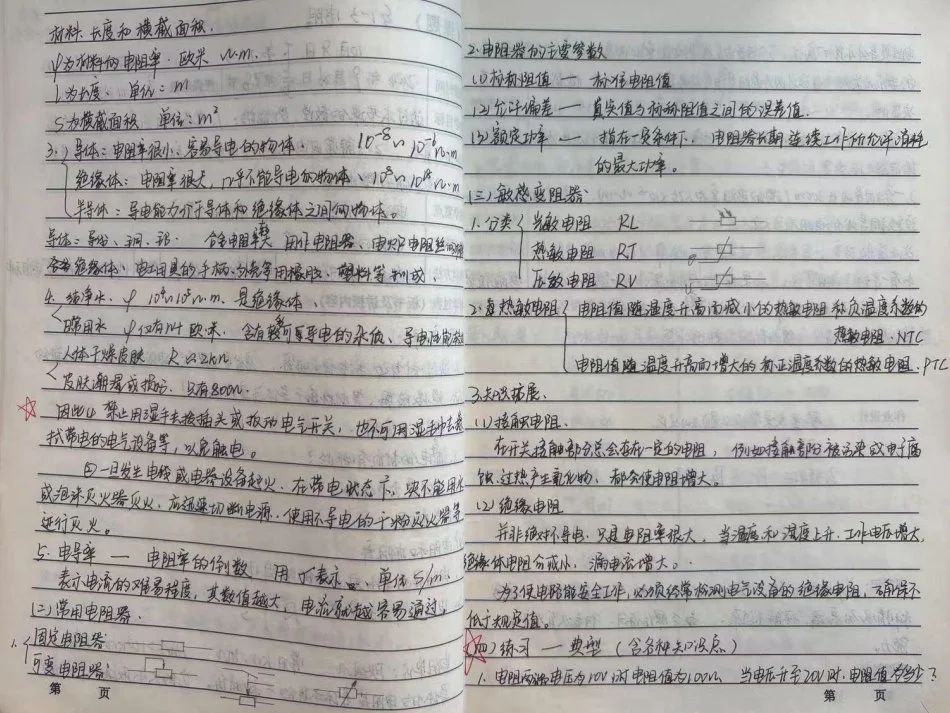 材料、长度和横截面积.
ρ为材料的电阻率. 欧米 Ω·m.
l为长度. 单位: m
S为横截面积 单位: m²
3. 导体: 电阻率很小、容易导电的物体. 10⁻⁸ ~ 10⁻⁶ Ω·m
绝缘体: 电阻率很大, 几乎不能导电的物体、10⁸ ~ 10¹⁴ Ω·m
半导体: 导电能力介于导体和绝缘体之间的物体.
导体: 导线、铜、铝. 合金电阻率大 用作电阻器、电炉
绝缘体、电工用具的手柄、外壳等用橡胶、塑料等制成.
4. 纯净水. ρ 10⁴~10⁵Ω·m. 是绝缘体.
日常用水 ρ仅有几十欧米. 含有较多可导电的杂质、导电性能
人体干燥皮肤 R ≈2kΩ
皮肤潮湿或损伤. 只有800Ω.
因此 禁止用湿手去接插头或扳动电气开关, 也不可用湿毛巾去
找带电的电气设备等, 以免触电.
一旦发生电线或电器设备起火, 在带电状态下, 决不能用水
或泡沫灭火器灭火, 应迅速切断电源, 使用不导电的干粉灭火器等
进行灭火。
5. 电导率 — 电阻率的倒数 用 σ表示. 单位 S/m.
表示电流的难易程度, 其数值越大, 电流就越容易通过.
(二) 常用电阻器.
1. 固定电阻器:
可变电阻器:
第 页
2. 电阻器的主要参数
(1) 标称阻值 — 标准电阻值.
(2) 允许偏差 — 真实值与标称阻值之间的误差值.
(3) 额定功率 — 指在一定条件下, 电阻器长期连续工作所允许消耗
的最大功率。
(三) 敏感变阻器:
1. 分类 光敏电阻 RL
热敏电阻 RT
压敏电阻 RV
2. 热敏电阻 电阻值随温度升高而减小的热敏电阻称负温度系数的
热敏电阻. NTC
电阻值随温度升高而增大的称正温度系数的热敏电阻. PTC
3. 知识拓展.
(1) 接触电阻.
在开关接触部分总会存在一定的电阻, 例如接触部分被污染或电子腐
蚀、过热产生氧化物, 都会使电阻增大。
(2) 绝缘电阻
并非绝对不导电. 只是电阻率很大, 当温度和湿度上升. 工作电压增大,
绝缘体电阻会减小、漏电流增大。
为了保电路能安全工作, 必须经常检测电气设备的绝缘电阻, 确保不
低于规定值。
(四) 练习 — 典型 (含各种知识点)
1. 电阻两端电压为10V时电阻值为100Ω, 当电压升至20V时. 电阻值为多少?
第 页